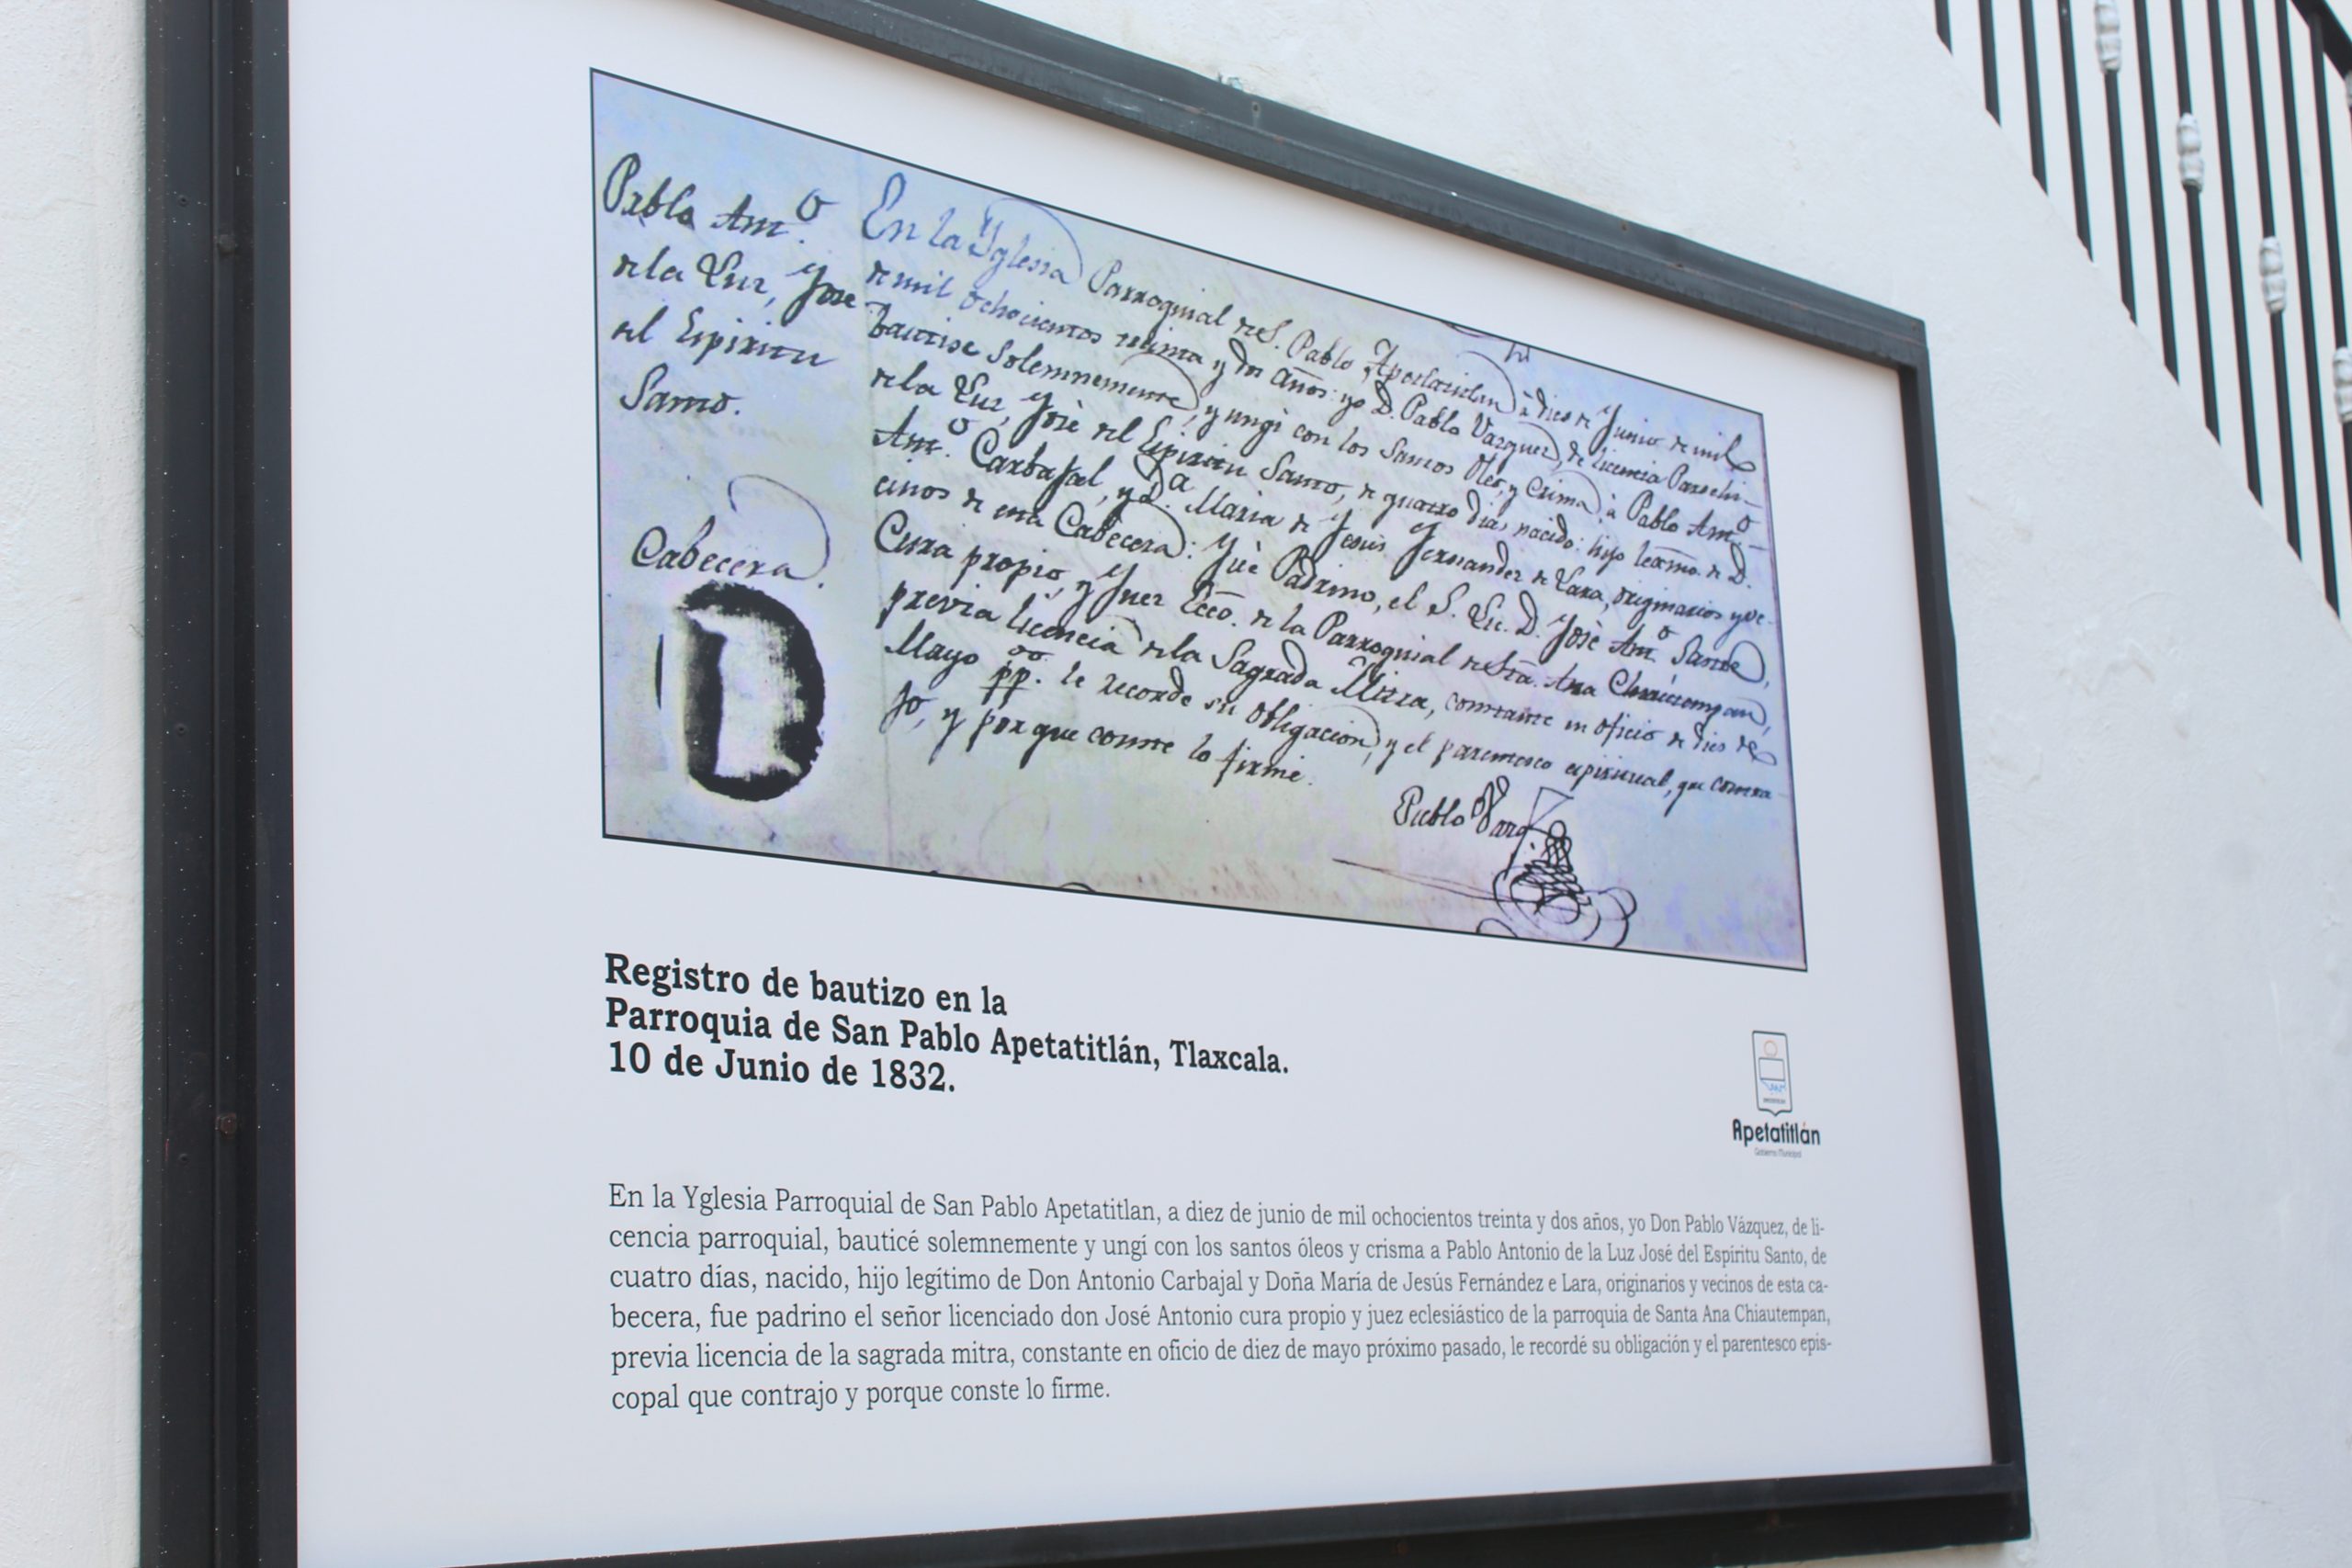 Pablo Ant.º
de la Luz, Jose
del Espiritu
Santo.
Cabecera.
En la Yglesia Parroquial de S. Pablo Apetatitlan, à dies de Junio de mil
de mil ochocientos treinta y dos años: yo D. Pablo Vazquez, de licencia Parochi-
bautise solemnemente, y ungì con los Santos Oleo, y Crisma, à Pablo Ant.º
de la Luz, Josè del Espiritu Santo, de quatro dias nacido: hijo legmo. de D.
Ant.º Carbajal, y D.ª Maria de Jesus Fernandez de Lara, originarios y ve-
cinos de esta Cabecera: fuè Padrino, el S. Lic. D. Josè Ant.º
Cura propio, y Juez Ecco. de la Parroquial de Sta. Ana Chiautempan,
previa licencia de la Sagrada Mitra, constante en oficio de dies de
Mayo pp.º le recorde su obligacion, y el parentesco espiritual, que contra-
jo, y porque conste lo firmè.
Pablo
Registro de bautizo en la
Parroquia de San Pablo Apetatitlán, Tlaxcala.
10 de Junio de 1832.
Apetatitlán
Gobierno Municipal
En la Yglesia Parroquial de San Pablo Apetatitlan, a diez de junio de mil ochocientos treinta y dos años, yo Don Pablo Vázquez, de li-
cencia parroquial, bauticé solemnemente y ungí con los santos óleos y crisma a Pablo Antonio de la Luz José del Espíritu Santo, de
cuatro días, nacido, hijo legítimo de Don Antonio Carbajal y Doña María de Jesús Fernández e Lara, originarios y vecinos de esta ca-
becera, fue padrino el señor licenciado don José Antonio cura propio y juez eclesiástico de la parroquia de Santa Ana Chiautempan,
previa licencia de la sagrada mitra, constante en oficio de diez de mayo próximo pasado, le recordé su obligación y el parentesco epis-
copal que contrajo y porque conste lo firme.